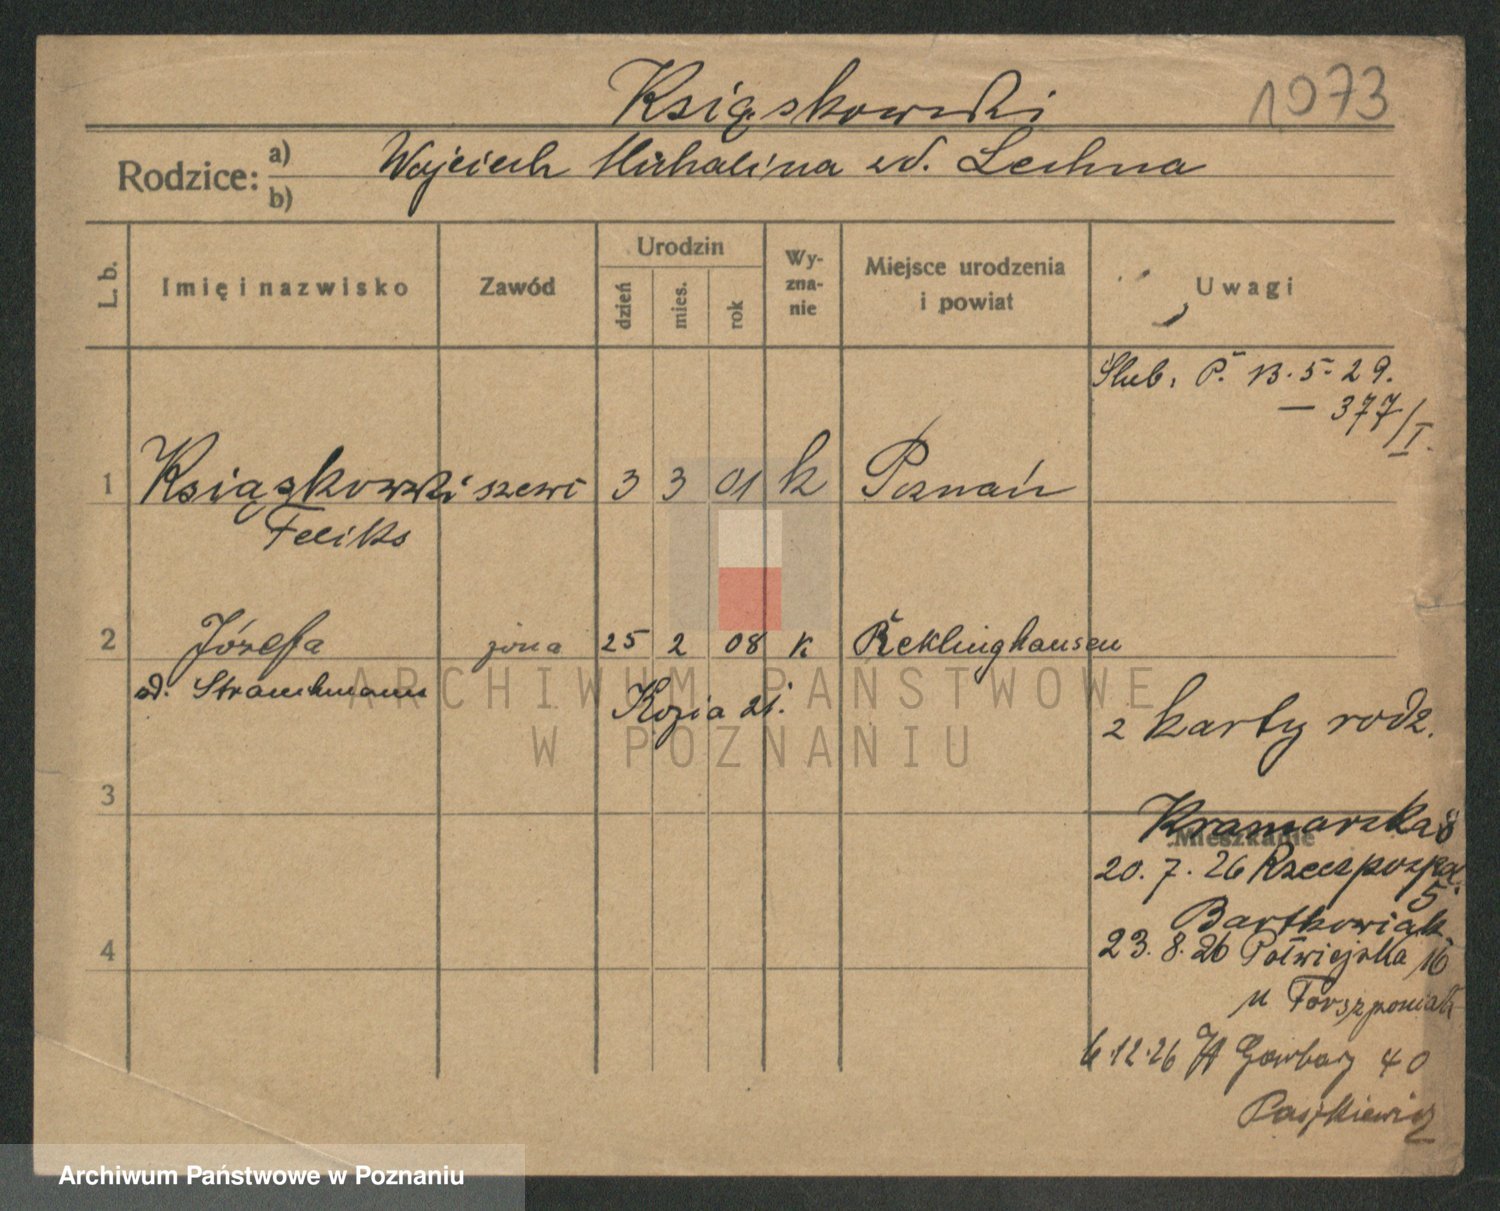 Książkowski
1073
Rodzice: a) b)
Wojciech Michalina zd. Lechna
L. b.
Imię i nazwisko
Zawód
Urodzin
dzień
mies.
rok
Wy-
zna-
nie
Miejsce urodzenia
i powiat
Uwagi
Ślub. P. 13.5.29.
— 377/I.
1 Książkowski szewc 3 3 01 k Poznań
Feliks
2 Józefa żona 25 2 08 k Recklinghausen
Kozia 21.
2 karty rodz.
3
Kramarska 8
Mieszkanie
20.7.26
5
Bartkowiak
4
23.8.26 Półwiejska 16
u
6.12.26 Garbary 40
ARCHIWUM PAŃSTWOWE
W POZNANIU
Archiwum Państwowe w Poznaniu